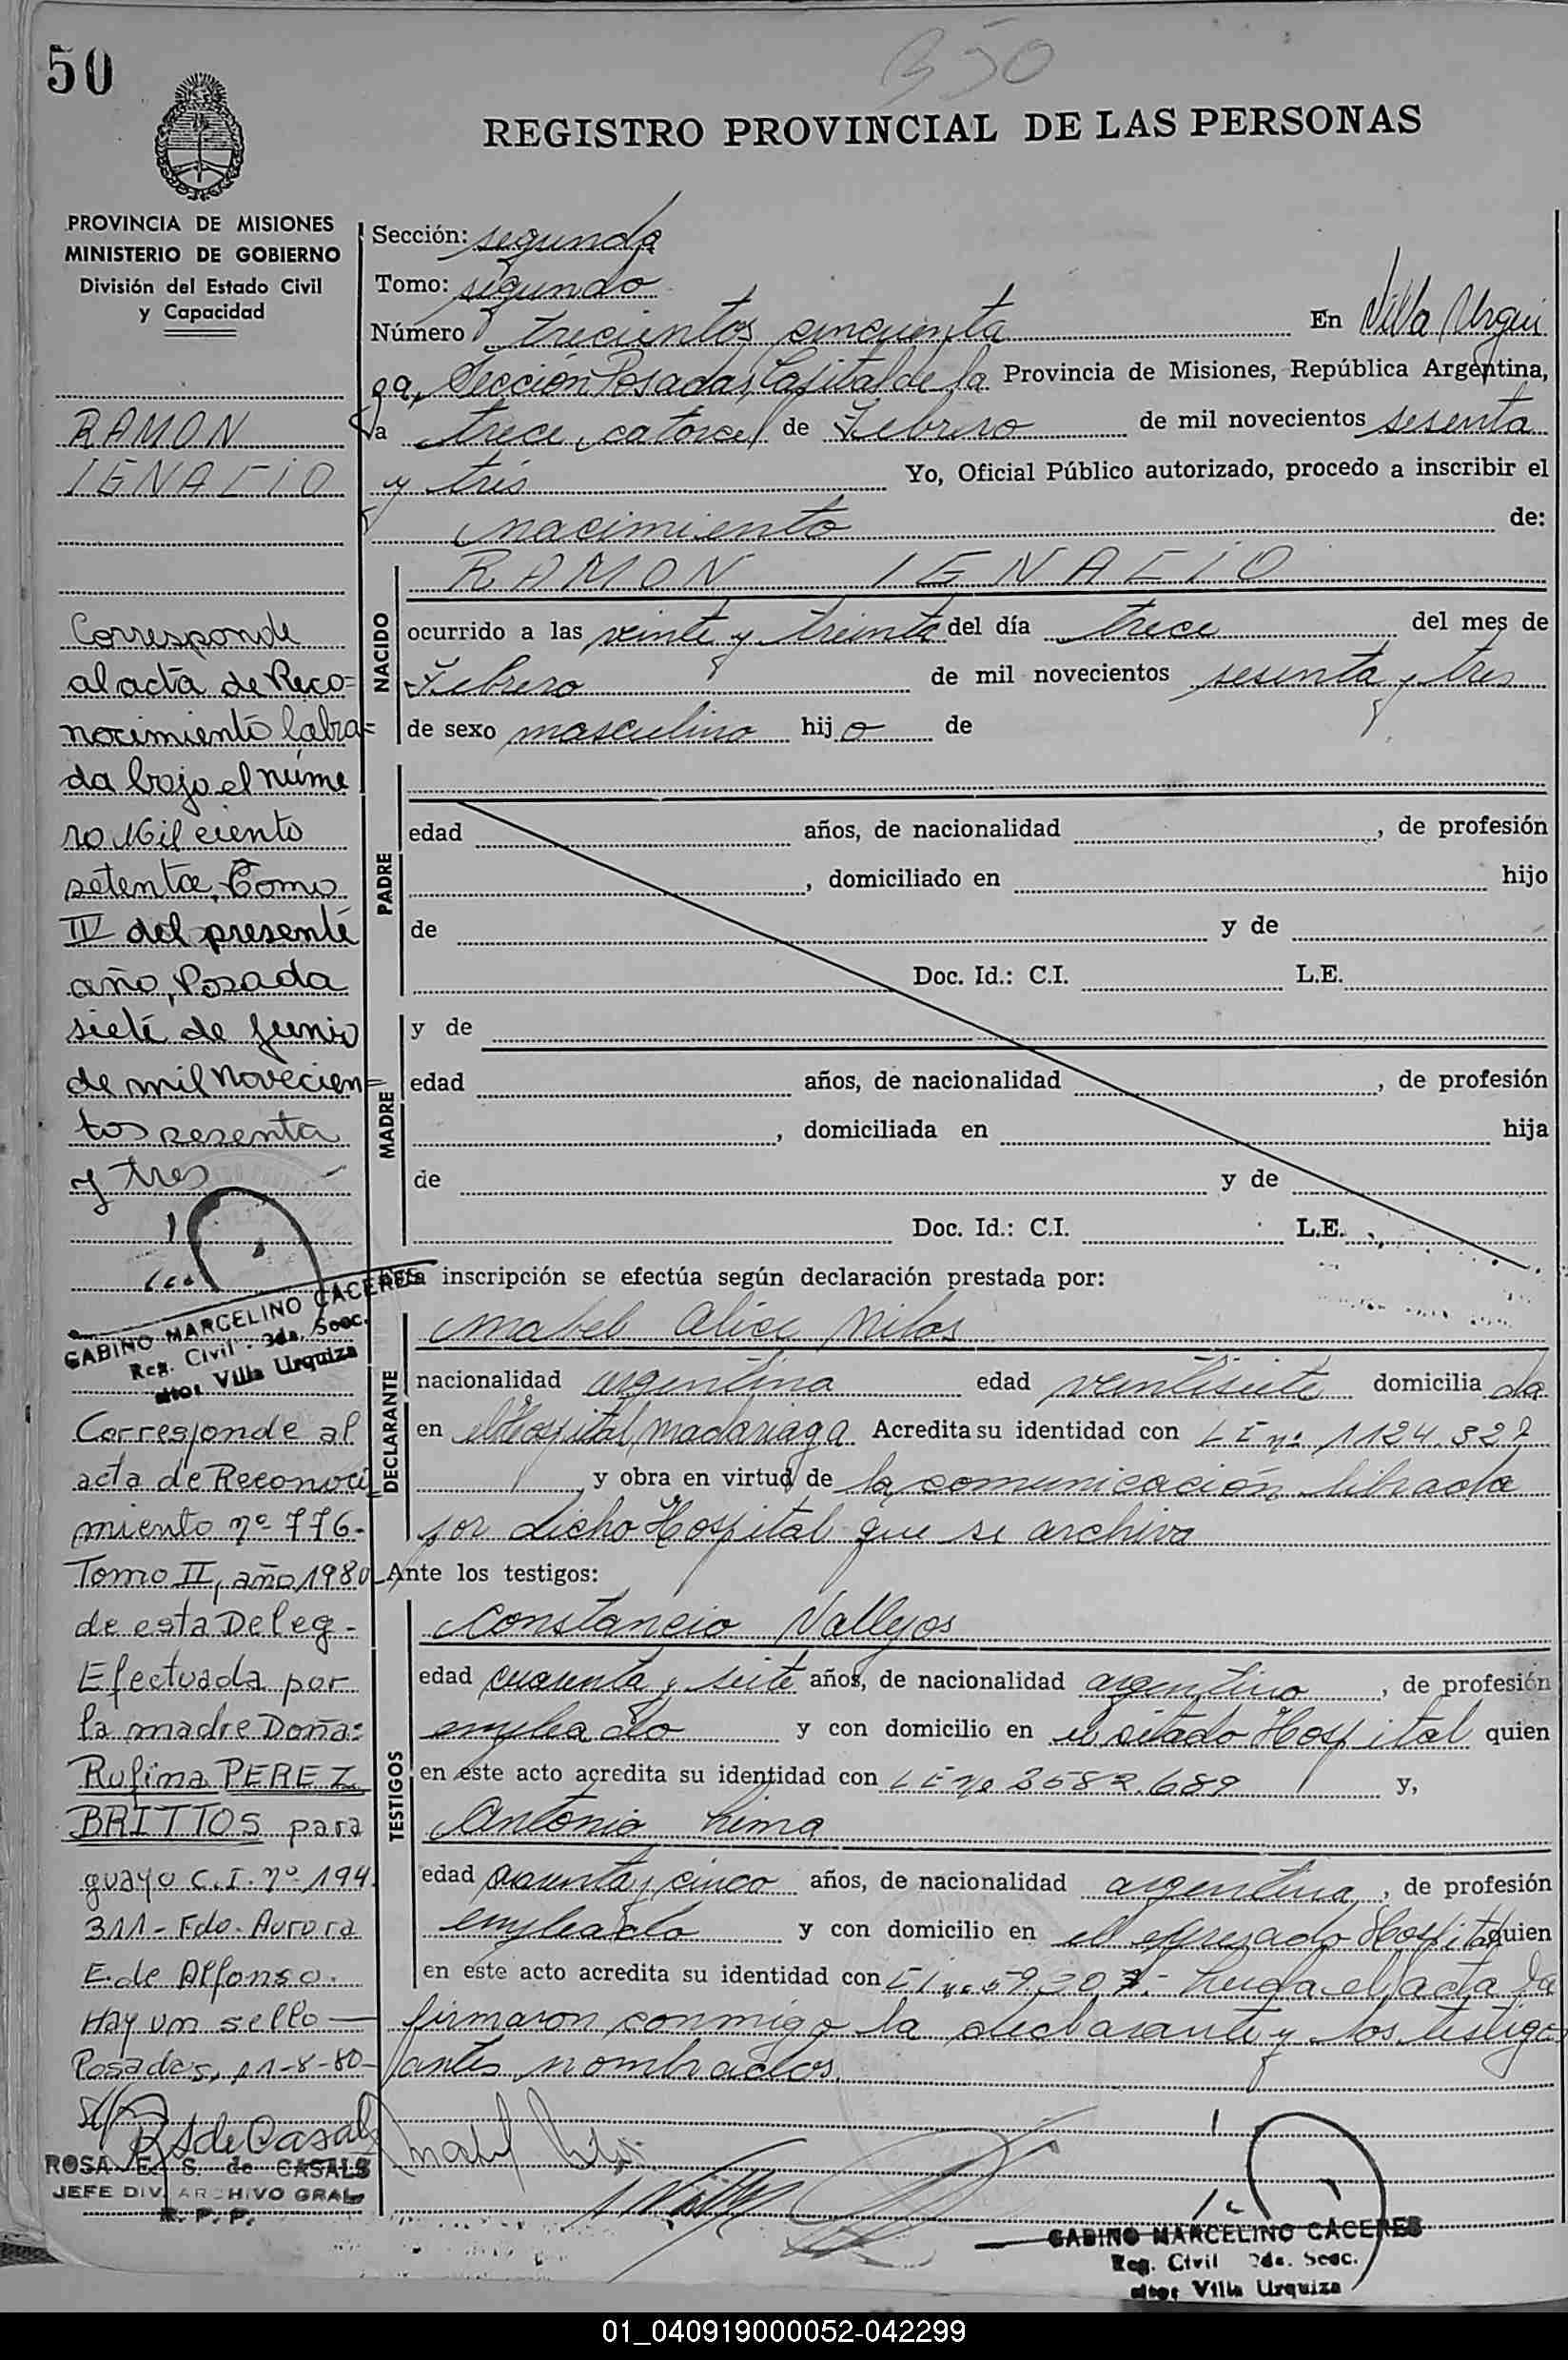 50
350
REGISTRO PROVINCIAL DE LAS PERSONAS
PROVINCIA DE MISIONES
MINISTERIO DE GOBIERNO
División del Estado Civil
y Capacidad
RAMON
IGNACIO
Corresponde
al acta de Reco=
nocimiento labra=
da bajo el núme
ro Mil ciento
setenta, Tomo
IV del presente
año, Posada
siete de Junio
de mil novecien=
tos sesenta
y tres
GABINO MARCELINO CACERES
Reg. Civil - 2da. Secc.
Villa Urquiza
Corresponde al
acta de Reconoci
miento nº 776-
Tomo II, año 1980
de esta Deleg-
Efectuada por
la madre Doña:
Rufina PEREZ
BRITTOS para
guayo C.I. nº 194.
311- Fdo. Aurora
E. de Alfonso.
Hay un sello—
Posadas, 11-8-80-
ROSA E. S. de CASALS
JEFE DIV. ARCHIVO GRAL
R. P. P.
Sección: segunda
Tomo: segundo
Número trecientos cincuenta En Villa Urqui
za, Sección Posadas, Capital de la Provincia de Misiones, República Argentina,
a trece, catorce, de Febrero de mil novecientos sesenta
y tres Yo, Oficial Público autorizado, procedo a inscribir el
nacimiento de:
NACIDO
RAMON IGNACIO
ocurrido a las veinte y treinta del día trece del mes de
Febrero de mil novecientos sesenta y tres
de sexo masculino hijo de
PADRE
edad años, de nacionalidad , de profesión
, domiciliado en hijo
de y de
Doc. Id.: C.I. L.E.
MADRE
y de
edad años, de nacionalidad , de profesión
, domiciliada en hija
de y de
Doc. Id.: C.I. L.E.
inscripción se efectúa según declaración prestada por:
DECLARANTE
Mabel Alice Milos
nacionalidad argentina edad veintisiete domiciliada
en el Hospital Madariaga Acredita su identidad con L E nº 1124.327
y obra en virtud de la comunicación librada
por dicho Hospital que se archiva
Ante los testigos:
TESTIGOS
Constancio Vallejos
edad cuarenta y siete años, de nacionalidad argentino, de profesión
empleado y con domicilio en el citado Hospital quien
en este acto acredita su identidad con L E nº 3582.689 y,
Antonia Lima
edad cuarenta y cinco años, de nacionalidad argentina, de profesión
empleado y con domicilio en el expresado Hospital quien
en este acto acredita su identidad con C I nº 59.307.- Leída el acta la
firmaron conmigo la declarante y los testigos
antes nombrados.
GABINO MARCELINO CACERES
Reg. Civil 2da. Secc.
Villa Urquiza
01_040919000052-042299